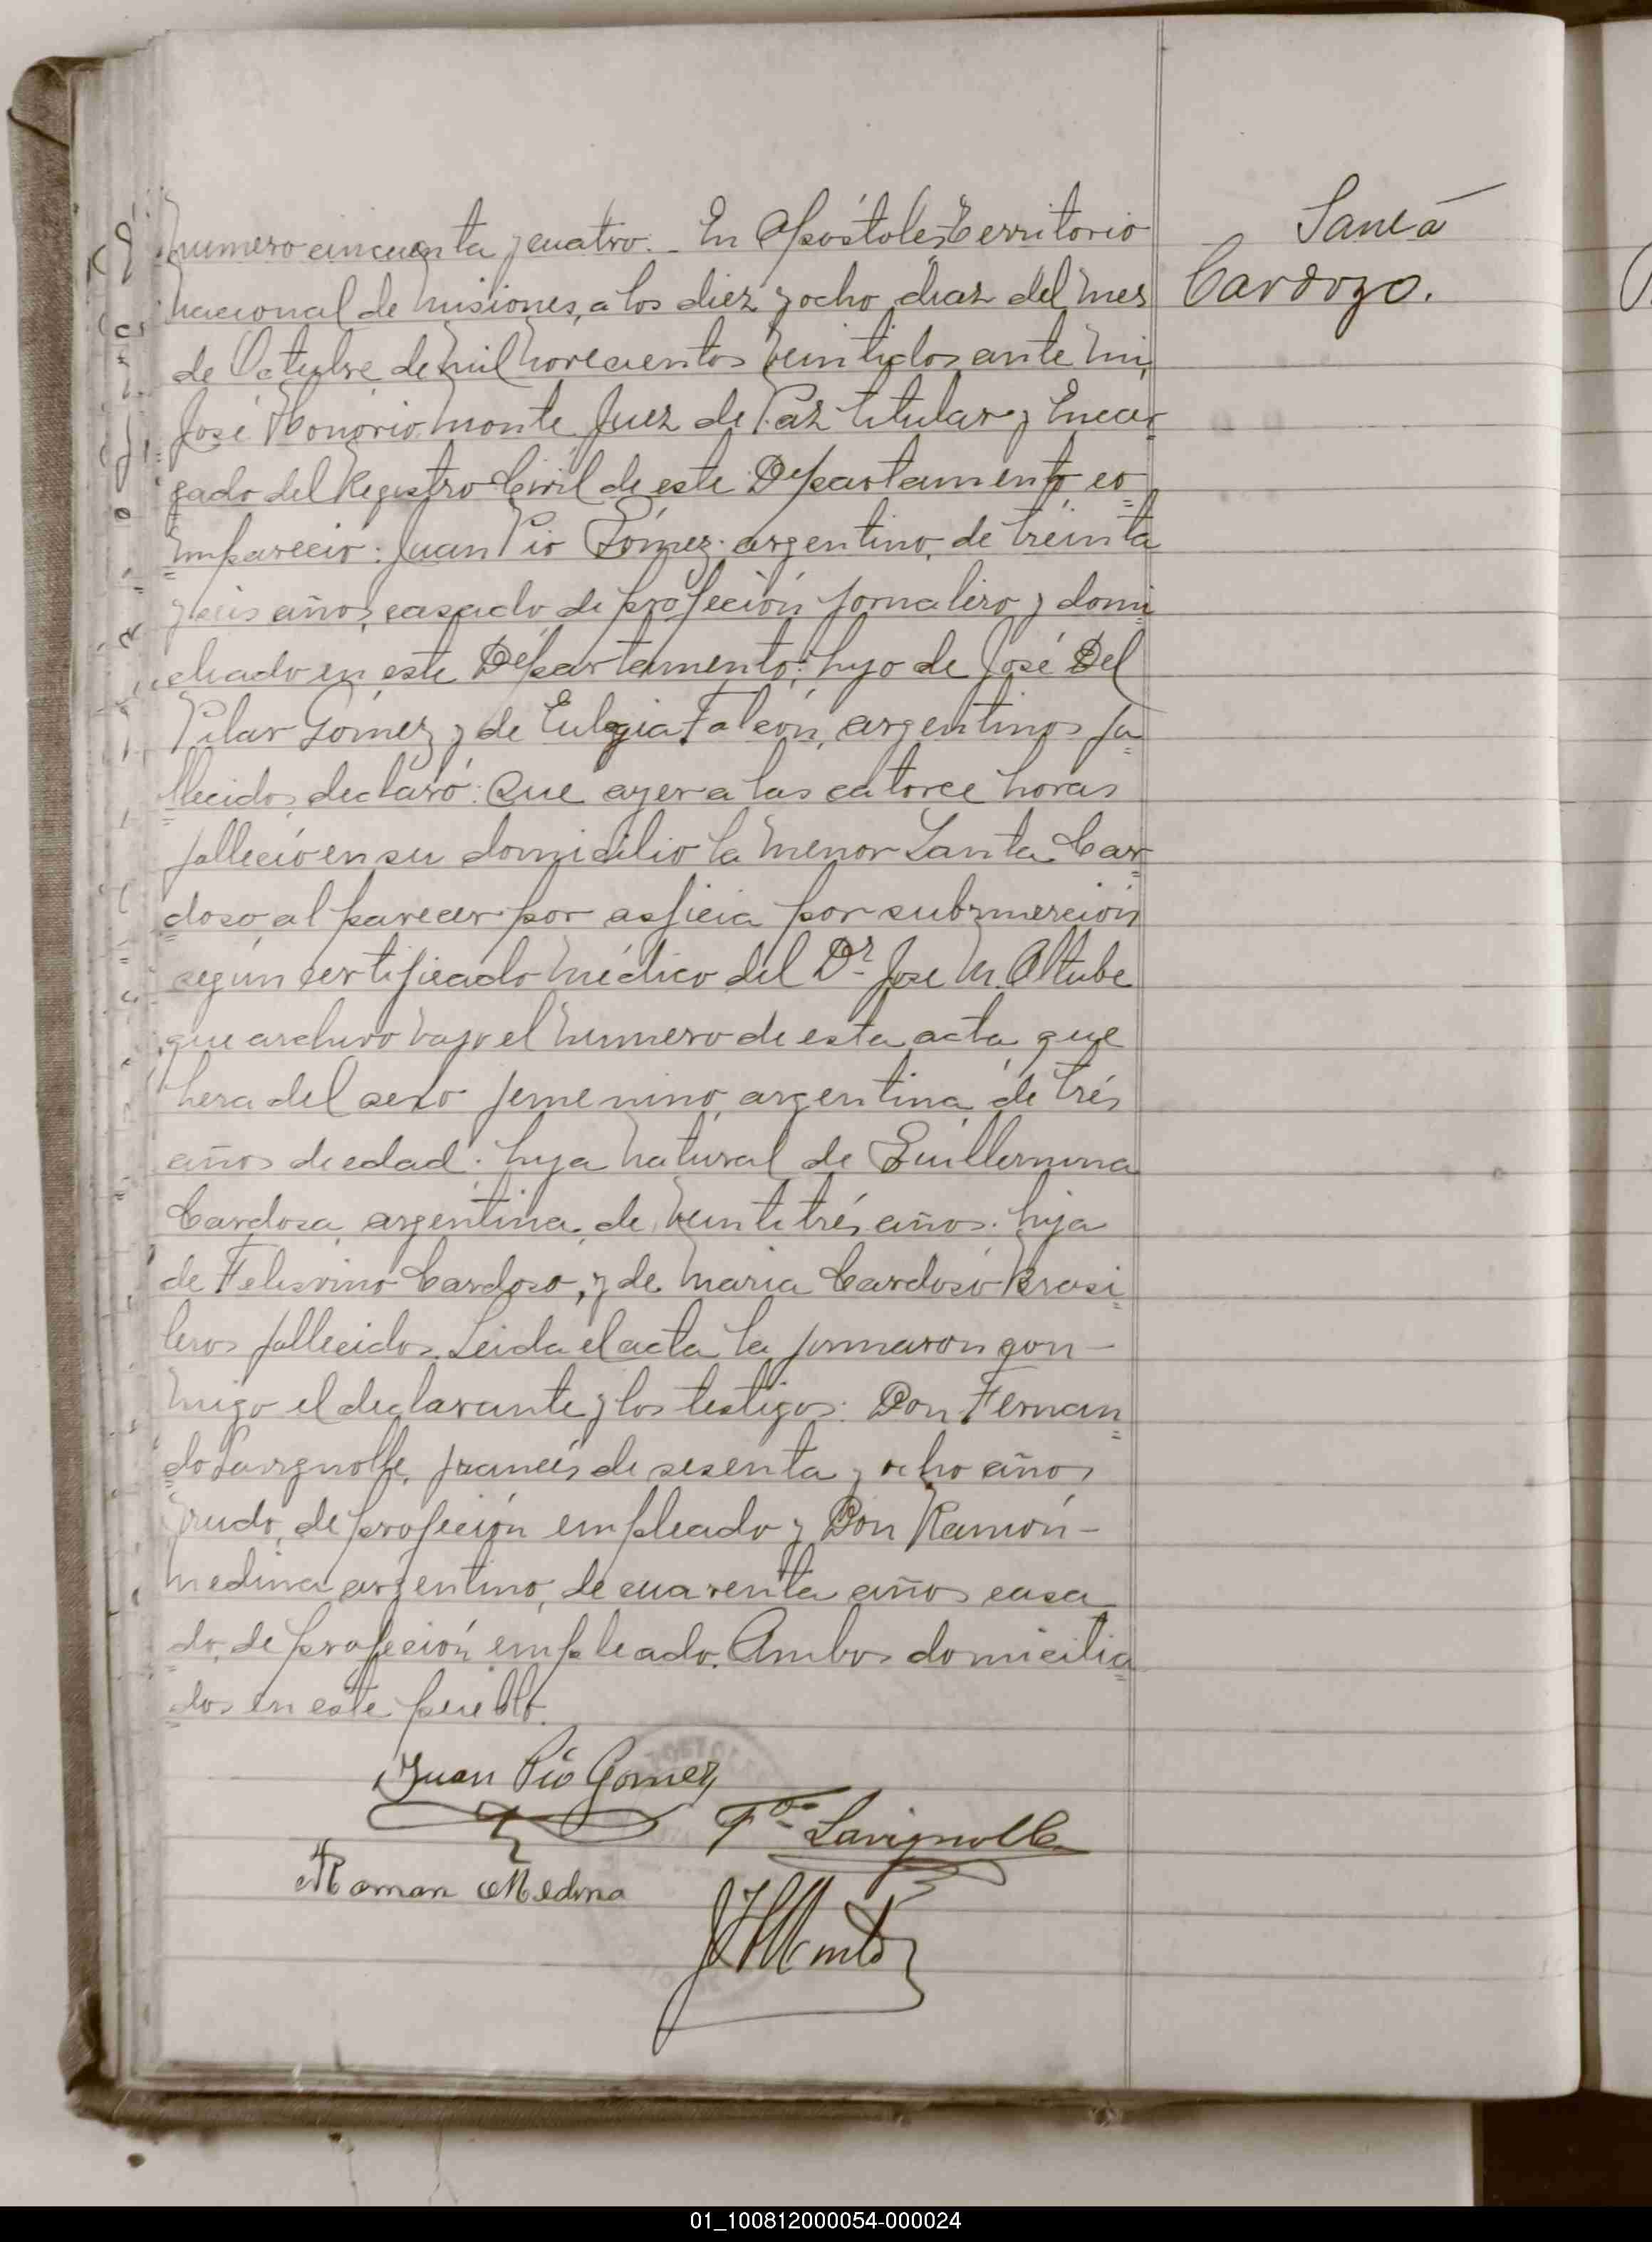 Santa
Cardozo.
Numero cincuenta y cuatro. En Apóstoles, Territorio
Nacional de Misiones, a los diez y ocho diaz del mes
de Octubre de mil novecientos veintidos ante mi,
José Honório Monte Juez de Paz titular y Encar
gado del Registro Civil de este Departamento, co=
=mpareció: Juan Pio Gómez argentino, de treinta
y seis años, casado de profeción jornalero y domi=
ciliado en este Departamento; hijo de José Del
Pilar Gómez y de Eulogia Falcón, argentinos fa=
=llecidos, declaró: Que ayer a las catorce horas
falleció en su domicilio la menor Santa Car=
=doso, al parecer por asficia por submerción
según certificado médico del Dr. Jose M. Altube
que archivo bajo el numero de esta acta, que
hera del sexo femenino, argentina, de trés
años de edad: hija natural de Guillermina
Cardosa, argentina, de veintitrés años. hija
de Felisvino Cardoso, y de Maria Cardoso Brasi=
leros fallecidos. Leida el acta la firmaron con-
migo el declarante y los testigos: Don Fernan=
=do Lavignolle, francés de sesenta y ocho años
viudo, de profeción empleado y Don Ramón-
Medina argentino, de cuarenta años casa
=do, de profeción empleado. Ambos domicilia=
=dos en este pueblo.
Juan Pío Gomez
Fdo. Lavignolle
Roman Medina
JHMonte
01_100812000054-000024